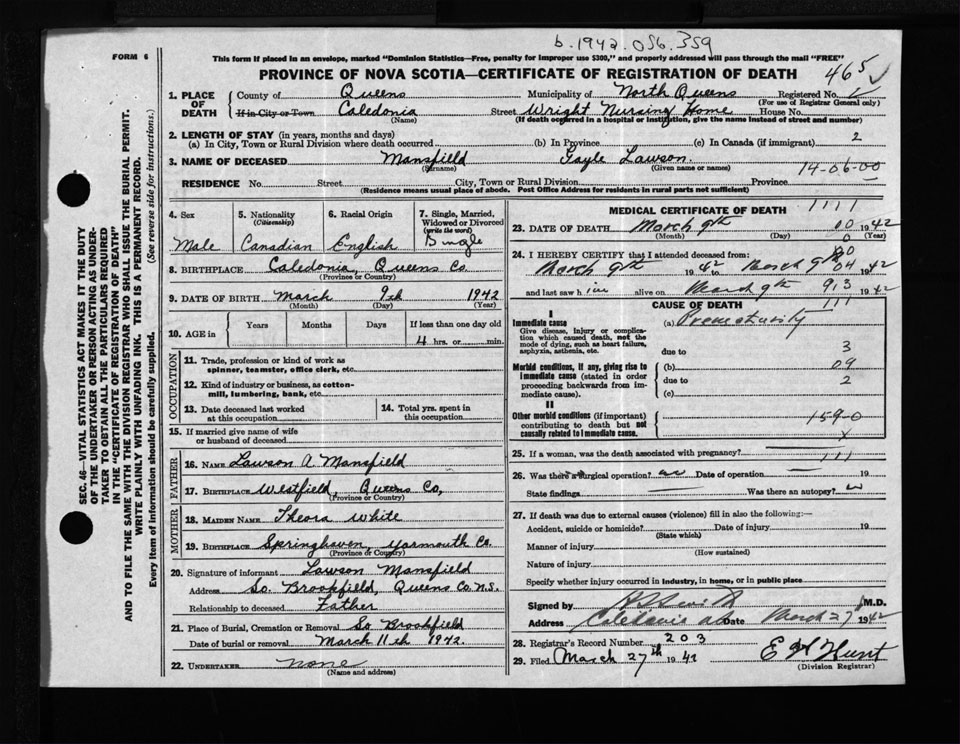 b.1942.056.359
FORM 6
This form if placed in an envelope, marked "Dominion Statistics—Free, penalty for improper use $300," and properly addressed will pass through the mail "FREE"
PROVINCE OF NOVA SCOTIA—CERTIFICATE OF REGISTRATION OF DEATH
465
1. PLACE OF DEATH
County of Queens Municipality of North Queens Registered No.
(For use of Registrar General only)
If in City or Town Caledonia Street Wright Nursing Home House No.
(Name) (If death occurred in a hospital or institution, give the name instead of street and number)
2. LENGTH OF STAY (in years, months and days)
(a) In City, Town or Rural Division where death occurred (b) In Province (c) In Canada (if immigrant) 2
3. NAME OF DECEASED Mansfield Gayle Lawson
(Surname) (Given name or names)
14-06-00
RESIDENCE No. Street City, Town or Rural Division Province
(Residence means usual place of abode. Post Office Address for residents in rural parts not sufficient)
4. Sex Male
5. Nationality (Citizenship) Canadian
6. Racial Origin English
7. Single, Married, Widowed or Divorced (write the word) Single
8. BIRTHPLACE Caledonia, Queens Co.
(Province or Country)
9. DATE OF BIRTH March 9th 1942
(Month) (Day) (Year)
10. AGE in Years Months Days If less than one day old
4 hrs. or min.
OCCUPATION
11. Trade, profession or kind of work as spinner, teamster, office clerk, etc.
12. Kind of industry or business, as cotton-mill, lumbering, bank, etc.
13. Date deceased last worked at this occupation
14. Total yrs. spent in this occupation
15. If married give name of wife or husband of deceased
FATHER
16. NAME Lawson A. Mansfield
17. BIRTHPLACE Westfield, Queens Co,
(Province or Country)
MOTHER
18. MAIDEN NAME Theora White
19. BIRTHPLACE Springhaven, Yarmouth Co.
(Province or Country)
20. Signature of informant Lawson Mansfield
Address So. Brookfield, Queens Co. N.S.
Relationship to deceased Father
21. Place of Burial, Cremation or Removal So Brookfield
Date of burial or removal March 11th 1942.
22. UNDERTAKER none
(Name and address)
MEDICAL CERTIFICATE OF DEATH
1111
23. DATE OF DEATH March 9th 00 1942
(Month) (Day) (Year)
0
24. I HEREBY CERTIFY that I attended deceased from:
March 9th 1942 to March 9th 04 1942
and last saw him alive on March 9th 913 1942
CAUSE OF DEATH 111
I
Immediate cause
Give disease, injury or complication which caused death, not the mode of dying, such as heart failure, asphyxia, asthenia, etc.
(a) Prematurity
due to 3
Morbid conditions, if any, giving rise to immediate cause (stated in order proceeding backwards from immediate cause).
(b) 09
due to 2
(c)
II
Other morbid conditions (if important) contributing to death but not causally related to immediate cause.
159-0
x
25. If a woman, was the death associated with pregnancy? 111
26. Was there a surgical operation? no Date of operation 19
State findings Was there an autopsy?
27. If death was due to external causes (violence) fill in also the following:—
Accident, suicide or homicide? Date of injury 19
(State which)
Manner of injury
(How sustained)
Nature of injury
Specify whether injury occurred in industry, in home, or in public place
Signed by M.D.
Address Caledonia Date March 27 1942
28. Registrar's Record Number 203
29. Filed March 27th 1942 E H Hunt
(Division Registrar)
SEC. 46—VITAL STATISTICS ACT MAKES IT THE DUTY
OF THE UNDERTAKER OR PERSON ACTING AS UNDERTAKER
TO OBTAIN ALL THE PARTICULARS REQUIRED
IN THE "CERTIFICATE OF REGISTRATION OF DEATH"
AND TO FILE THE SAME WITH THE DIVISION REGISTRAR WHO SHALL ISSUE THE BURIAL PERMIT.
WRITE PLAINLY WITH UNFADING INK. THIS IS A PERMANENT RECORD.
Every item of information should be carefully supplied. (See reverse side for instructions.)